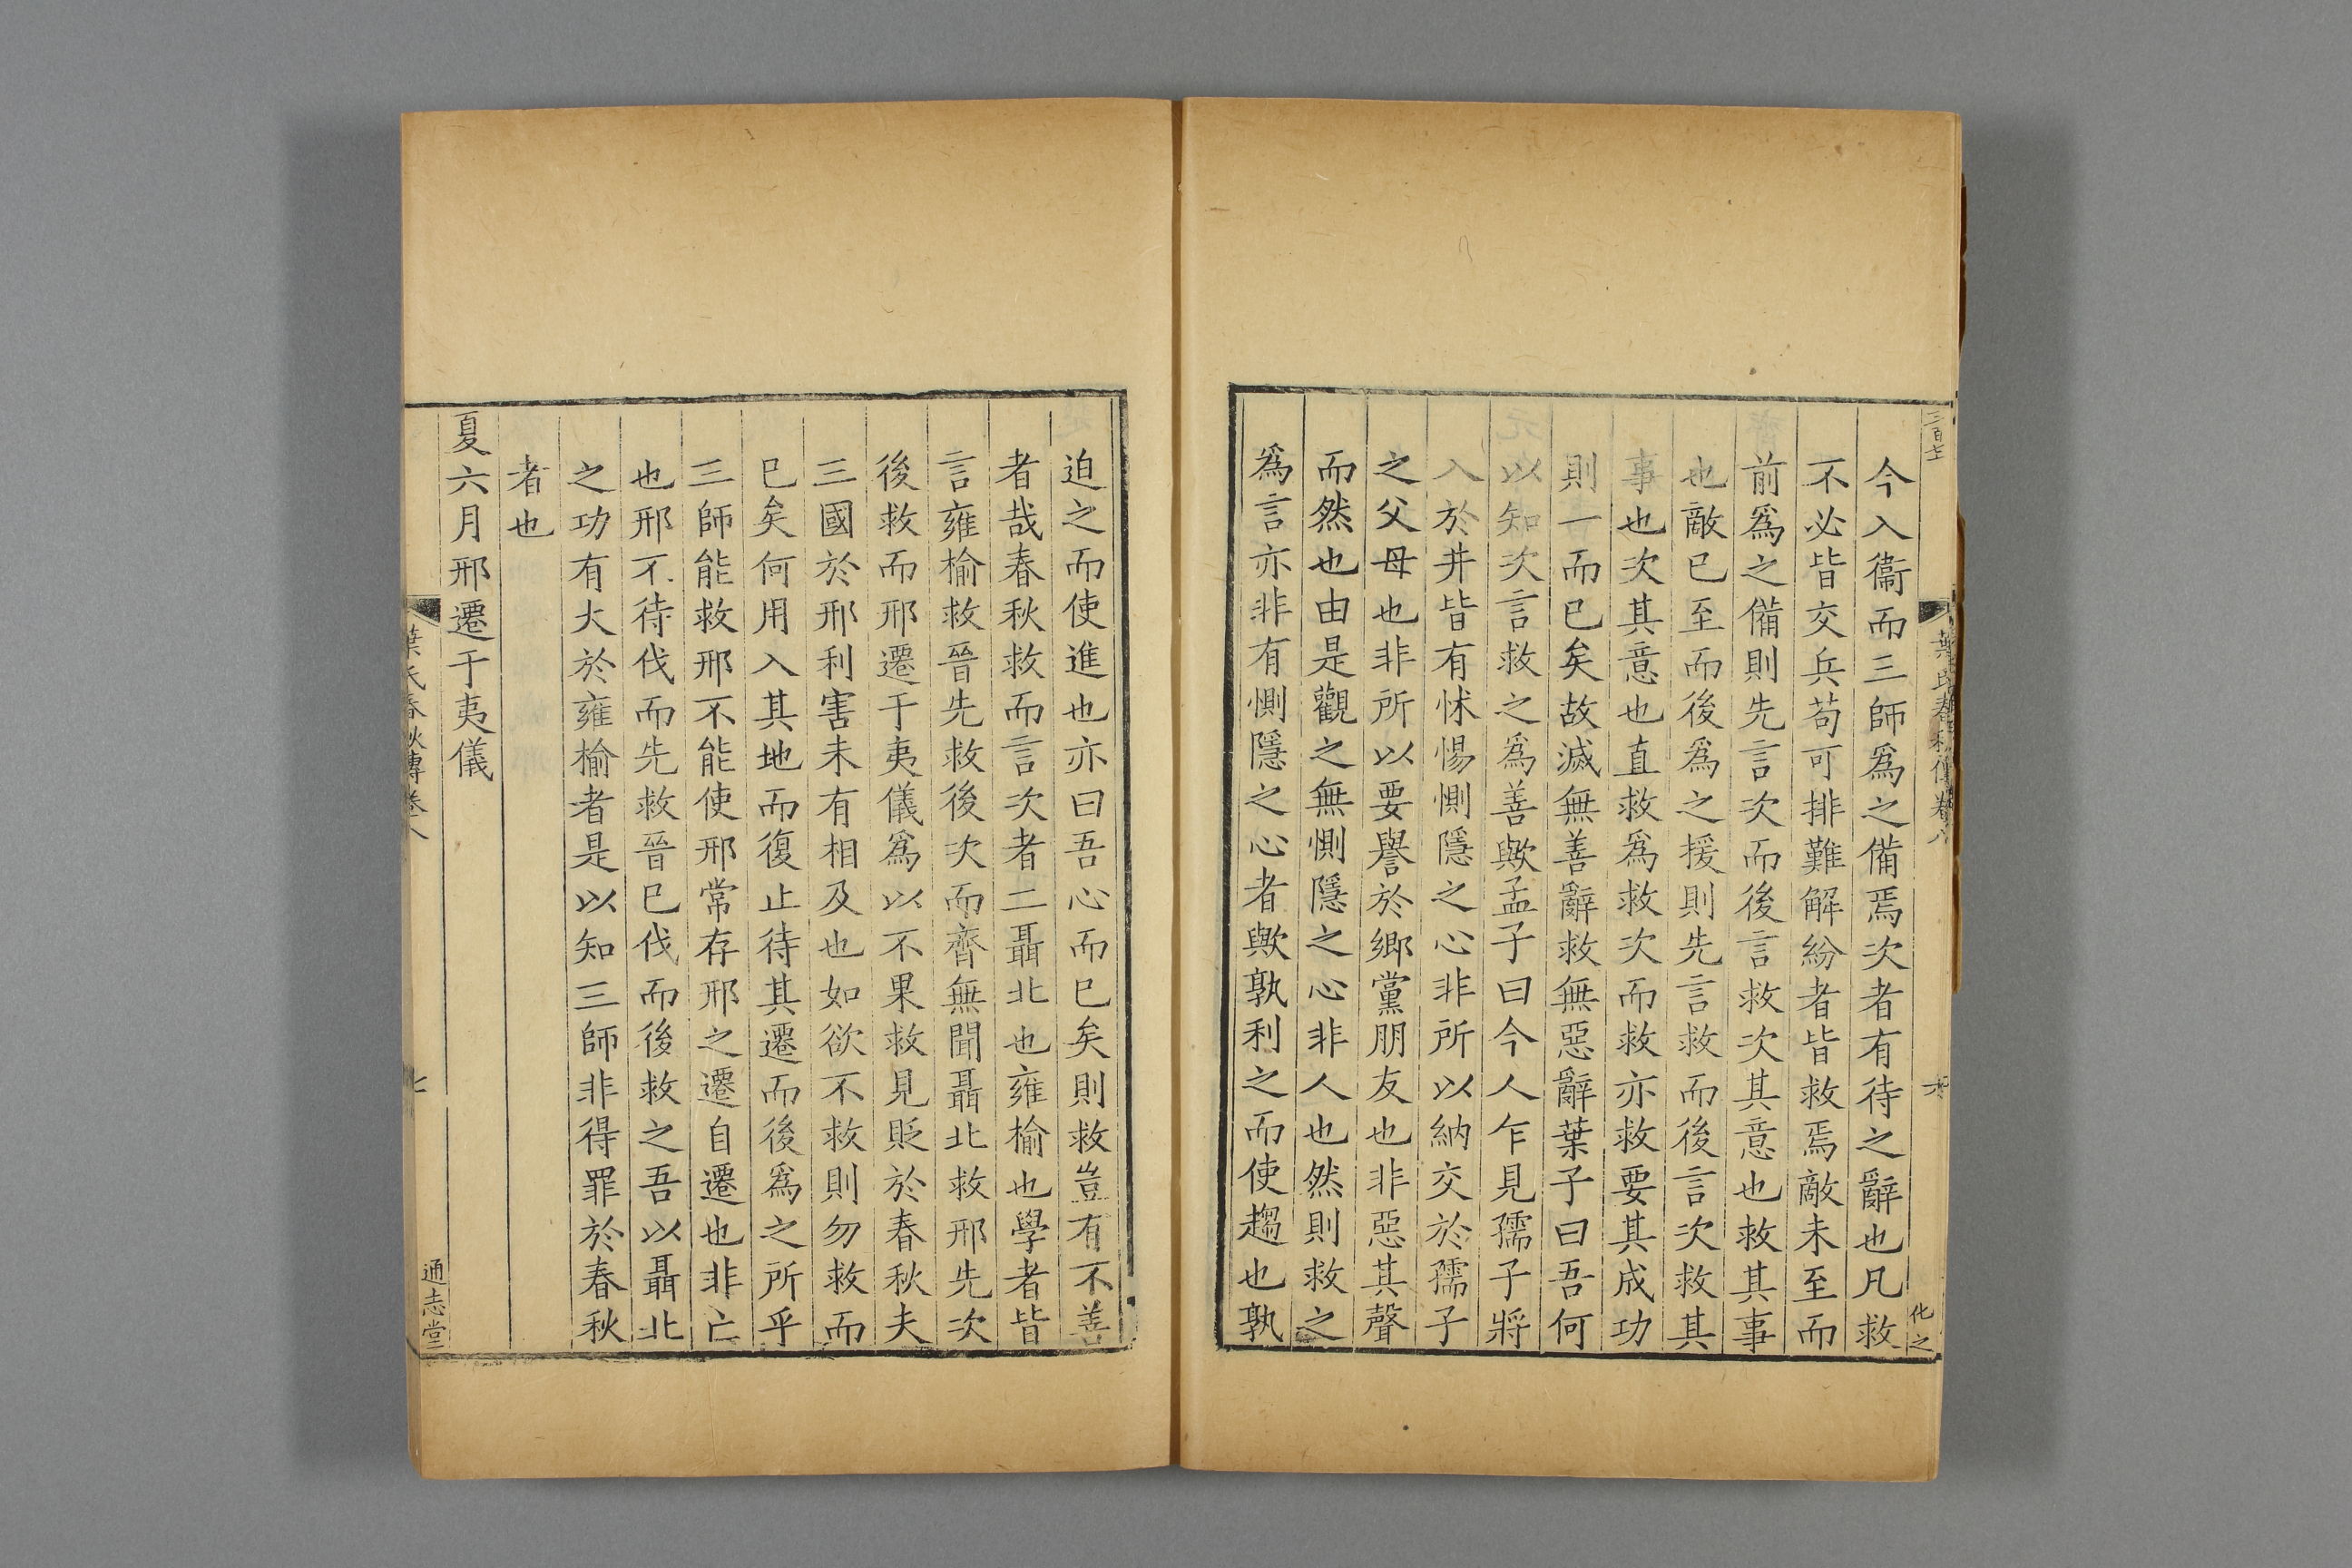 三百七十
葉氏春秋傳卷八
六
化之
今入衞而三師爲之備焉次者有待之辭也凡救
不必皆交兵苟可排難解紛者皆救焉敵未至而
前爲之備則先言次而後言救次其意也救其事
也敵已至而後爲之援則先言救而後言次救其
事也次其意也直救爲救次而救亦救要其成功
則一而已矣故滅無善辭救無惡辭葉子曰吾何
以知次言救之爲善歟孟子曰今人乍見孺子將
入於井皆有怵惕惻隱之心非所以納交於孺子
之父母也非所以要譽於鄉黨朋友也非惡其聲
而然也由是觀之無惻隱之心非人也然則救之
爲言亦非有惻隱之心者歟孰利之而使趨也孰
迫之而使進也亦曰吾心而已矣則救豈有不善
者哉春秋救而言次者二聶北也雍榆也學者皆
言雍榆救晉先救後次而齊無聞聶北救邢先次
後救而邢遷于夷儀爲以不果救見貶於春秋夫
三國於邢利害未有相及也如欲不救則勿救而
已矣何用入其地而復止待其遷而後爲之所乎
三師能救邢不能使邢常存邢之遷自遷也非亡
也邢不待伐而先救晉已伐而後救之吾以聶北
之功有大於雍榆者是以知三師非得罪於春秋
者也
夏六月邢遷于夷儀
葉氏春秋傳卷八
七
通志堂